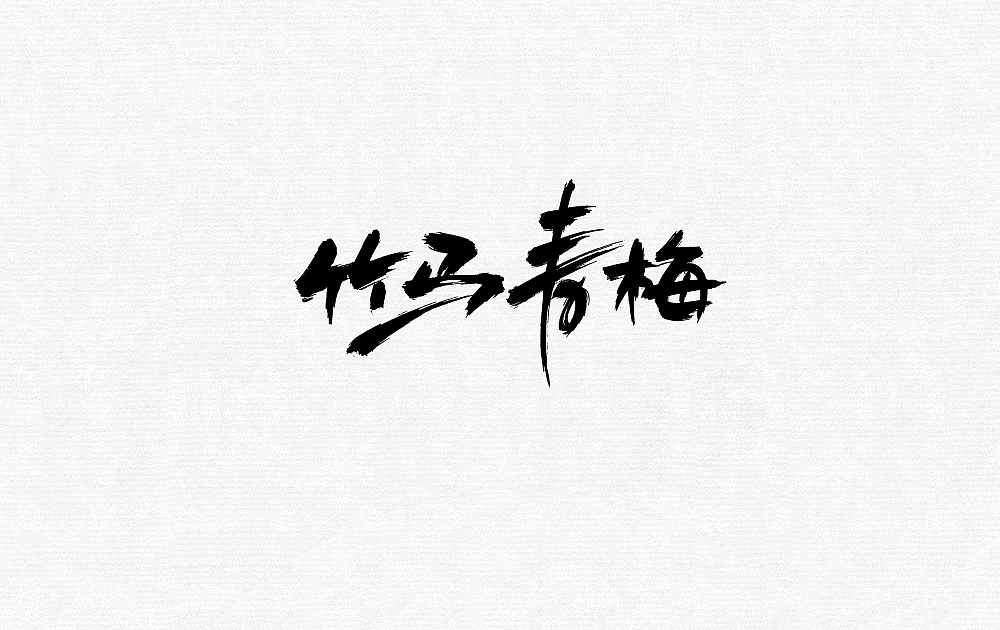 竹马青梅